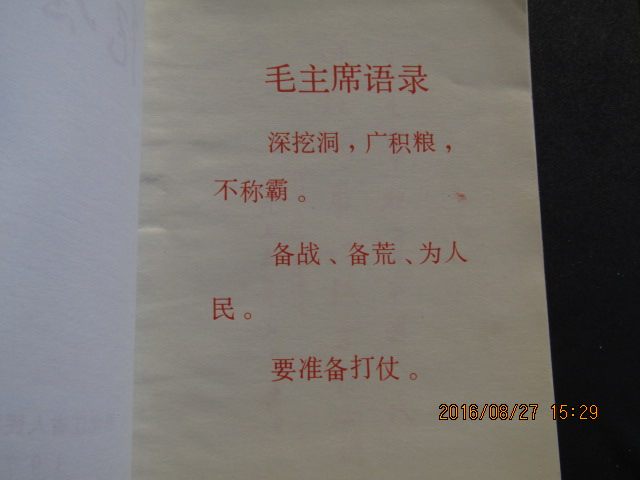 毛主席语录
深挖洞，广积粮，
不称霸。
备战、备荒、为人
民。
要准备打仗。
2016/08/27 15:29